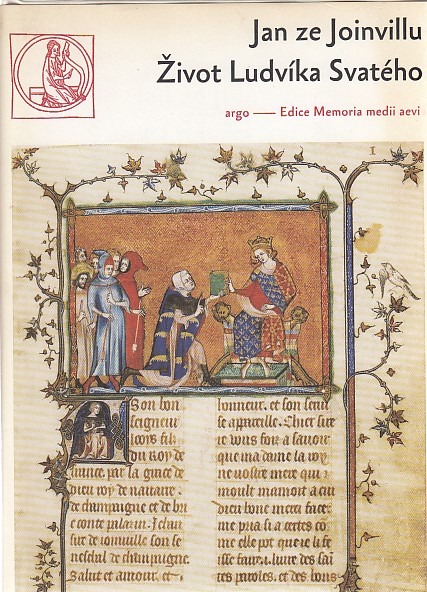 Jan ze Joinvillu
Život Ludvíka Svatého
argo — Edice Memoria medii aevi
I
A Son bon
seigneur
looys filz
du roy de
france. par la grace de
dieu roy de nauarre.
de champaigne et de bri
e conte palazin. Jehan
sire de ioinuille son se
neschal de champaigne.
Salut et amour. et
honneur. et son serui
se apareille. Chier sire
ie vous foiz a sauoir
que ma dame la roy
ne uostre mere qui
moult mamoit a cui
dieu bone merci face.
me pria si a certes co
me elle pot que ie li fe
isse faire .i. liure des sai
tes paroles. et des bons